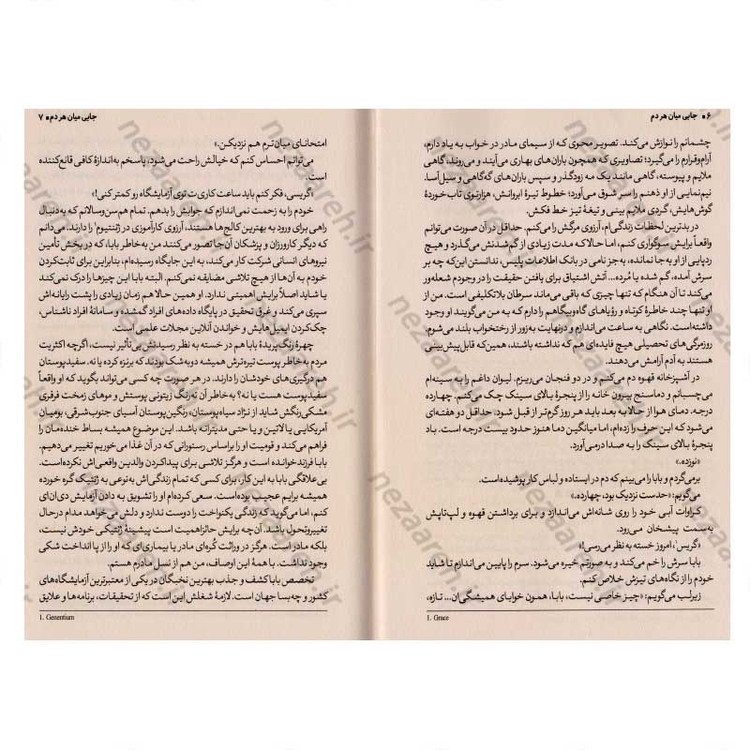 ۶ ▪ جایی میان هر دم
چشمانم را نوازش می‌کند. تصویر محوی که از سیمای مادر در خواب به یاد دارم،
آرام‌وقرارم را می‌گیرد؛ تصاویری که همچون باران‌های بهاری می‌آیند و می‌روند، گاهی
ملایم و پیوسته، گاهی مانند یک مه زودگذر و سپس باران‌های گه‌گاهی و سیل‌آسا.
نیم‌نمایی از او ذهنم را سر شوق می‌آورد؛ خطوط تیرهٔ ابروانش، هزارتوی تاب‌خوردهٔ
گوش‌هایش، گردی ملایم بینی و تیغهٔ تیز خط فکش.
در بدترین لحظات زندگی‌ام، آرزوی مرگش را می‌کنم. حداقل در آن صورت می‌توانم
واقعاً برایش سوگواری کنم، اما حالا که مدت زیادی از گم‌شدنش می‌گذرد و هیچ
ردپایی از او به‌جا نمانده، به‌جز نامی در بانک اطلاعات پلیس، ندانستن این‌که چه بر
سرش آمده، گم شده یا مُرده... آتش اشتیاق برای یافتن حقیقت را در وجودم شعله‌ور
می‌کند تا آن هنگام که تنها چیزی که باقی می‌ماند سرطان بلاتکلیفی است. من از
او تنها چند خاطرهٔ کوتاه و رؤیاهای گاه‌وبیگاهم را دارم که به من می‌گویند او وجود
داشته‌است. نگاهی به ساعت می‌اندازم و درنهایت به‌زور از رختخواب بلند می‌شوم.
روزمرگی‌های تحصیلی هیچ فایده‌ای هم که نداشته باشند، همین‌که قابل‌پیش‌بینی
هستند به آدم آرامش می‌دهند.
در آشپزخانه قهوه دم می‌کنم و در دو فنجان می‌ریزم. لیوان داغم را به سینه‌ام
می‌چسبانم و دماسنج بیرون خانه را از پنجرهٔ بالای سینک چک می‌کنم. چهارده
درجه. دمای هوا از حالا به بعد باید هر روز گرم‌تر از قبل شود. حداقل دو هفته‌ای
می‌شود که این حرف را زده‌ام، اما میانگین دما هنوز حدود بیست درجه است. باد
پنجرهٔ بالای سینک را به صدا درمی‌آورد.
«نوزده.»
برمی‌گردم و بابا را می‌بینم که دم در ایستاده و لباس کار پوشیده‌است.
می‌گویم: «حدست نزدیک بود، چهارده.»
کراوات آبی خود را روی شانه‌اش می‌اندازد و برای برداشتن قهوه و لپ‌تاپش
به‌سمت پیشخان می‌رود.
«گریس¹، امروز خسته به نظر می‌رسی!»
بابا سرش را خم می‌کند و به صورتم خیره می‌شود. سرم را پایین می‌اندازم تا شاید
خودم را از نگاه‌های تیزش خلاص کنم.
زیرلب می‌گویم: «چیز خاصی نیست، بابا، همون خوابای همیشگی‌ان... تازه،
1. Grace
جایی میان هر دم ▪ ۷
امتحانای میان‌ترم هم نزدیکن.»
می‌توانم احساس کنم که خیالش راحت می‌شود، پاسخم به‌اندازهٔ کافی قانع‌کننده
است.
«گریسی، فکر کنم باید ساعت کاری‌ت توی آزمایشگاه رو کمتر کنی!»
خودم را به زحمت نمی‌اندازم که جوابش را بدهم. تمام هم‌سن‌وسالانم که به‌دنبال
راهی برای ورود به بهترین کالج‌ها هستند، آرزوی کارآموزی در ژنتیوم¹ را دارند. می‌دانم
که دیگر کارورزان و پزشکان آن‌جا تصور می‌کنند من به‌خاطر بابا، که در بخش تأمین
نیروهای انسانی شرکت کار می‌کند، به این جایگاه رسیده‌ام، بنابراین برای ثابت‌کردن
خودم به آن‌ها از هیچ تلاشی مضایقه نمی‌کنم. البته بابا این چیزها را درک نمی‌کند
یا شاید اصلاً برایش اهمیتی ندارد. او همین حالا هم زمان زیادی را پشت رایانه‌اش
سپری می‌کند و غرق تحقیق در پایگاه داده‌های افراد گمشده و سامانهٔ افراد ناشناس،
چک‌کردن ایمیل‌هایش و خواندن آنلاین مجلات علمی است.
چهرهٔ رنگ‌پریدهٔ بابا هم در خسته به نظر رسیدنش بی‌تأثیر نیست، اگرچه اکثریت
مردم به‌خاطر پوست تیره‌ترش همیشه دوبه‌شک بودند که برنزه کرده یا نه. سفیدپوستان
هم درگیری‌های خودشان را دارند. در هر صورت چه کسی می‌تواند بگوید که او واقعاً
سفیدپوست هست یا نه؟ به خاطر آن ته‌رنگ زیتونی پوستش و موهای زمخت فرفری
مشکی‌رنگش شاید از نژاد سیاه‌پوستان، رنگین‌پوستان آسیای جنوب‌شرقی، بومیان
آمریکایی یا لاتین و یا حتی مدیترانه باشد. این موضوع همیشه بساط خنده‌مان را
فراهم می‌کند و قومیت او را براساس رستورانی که در آن غذا می‌خوریم تغییر می‌دهیم.
بابا فرزندخوانده است و هرگز تلاشی برای پیداکردن والدین واقعی‌اش نکرده‌است.
بی‌علاقگی بابا به این کار، برای کسی که تمام زندگی‌اش به‌نوعی به ژنتیک گره خورده
همیشه برایم عجیب بوده‌است. سعی کرده‌ام او را تشویق به دادن آزمایش دی‌ان‌ای
کنم، اما می‌گوید که زندگی یکنواخت را دوست ندارد و دلش می‌خواهد مدام درحال
تغییروتحول باشد. آن‌چه برایش حائزاهمیت است پیشینهٔ ژنتیکی خودش نیست،
بلکه مادر است. هرگز در وراثت گره‌ای مادر یا بیماری‌ای که او را از پا انداخت شکی
وجود نداشت. با همهٔ این اوصاف، من هم از نسل مادرم هستم.
تخصص بابا کشف و جذب بهترین نخبگان در یکی از معتبرترین آزمایشگاه‌های
کشور و چه‌بسا جهان است. لازمهٔ شغلش این است که از تحقیقات، برنامه‌ها و علایق
1. Genentium
nezaareh.ir